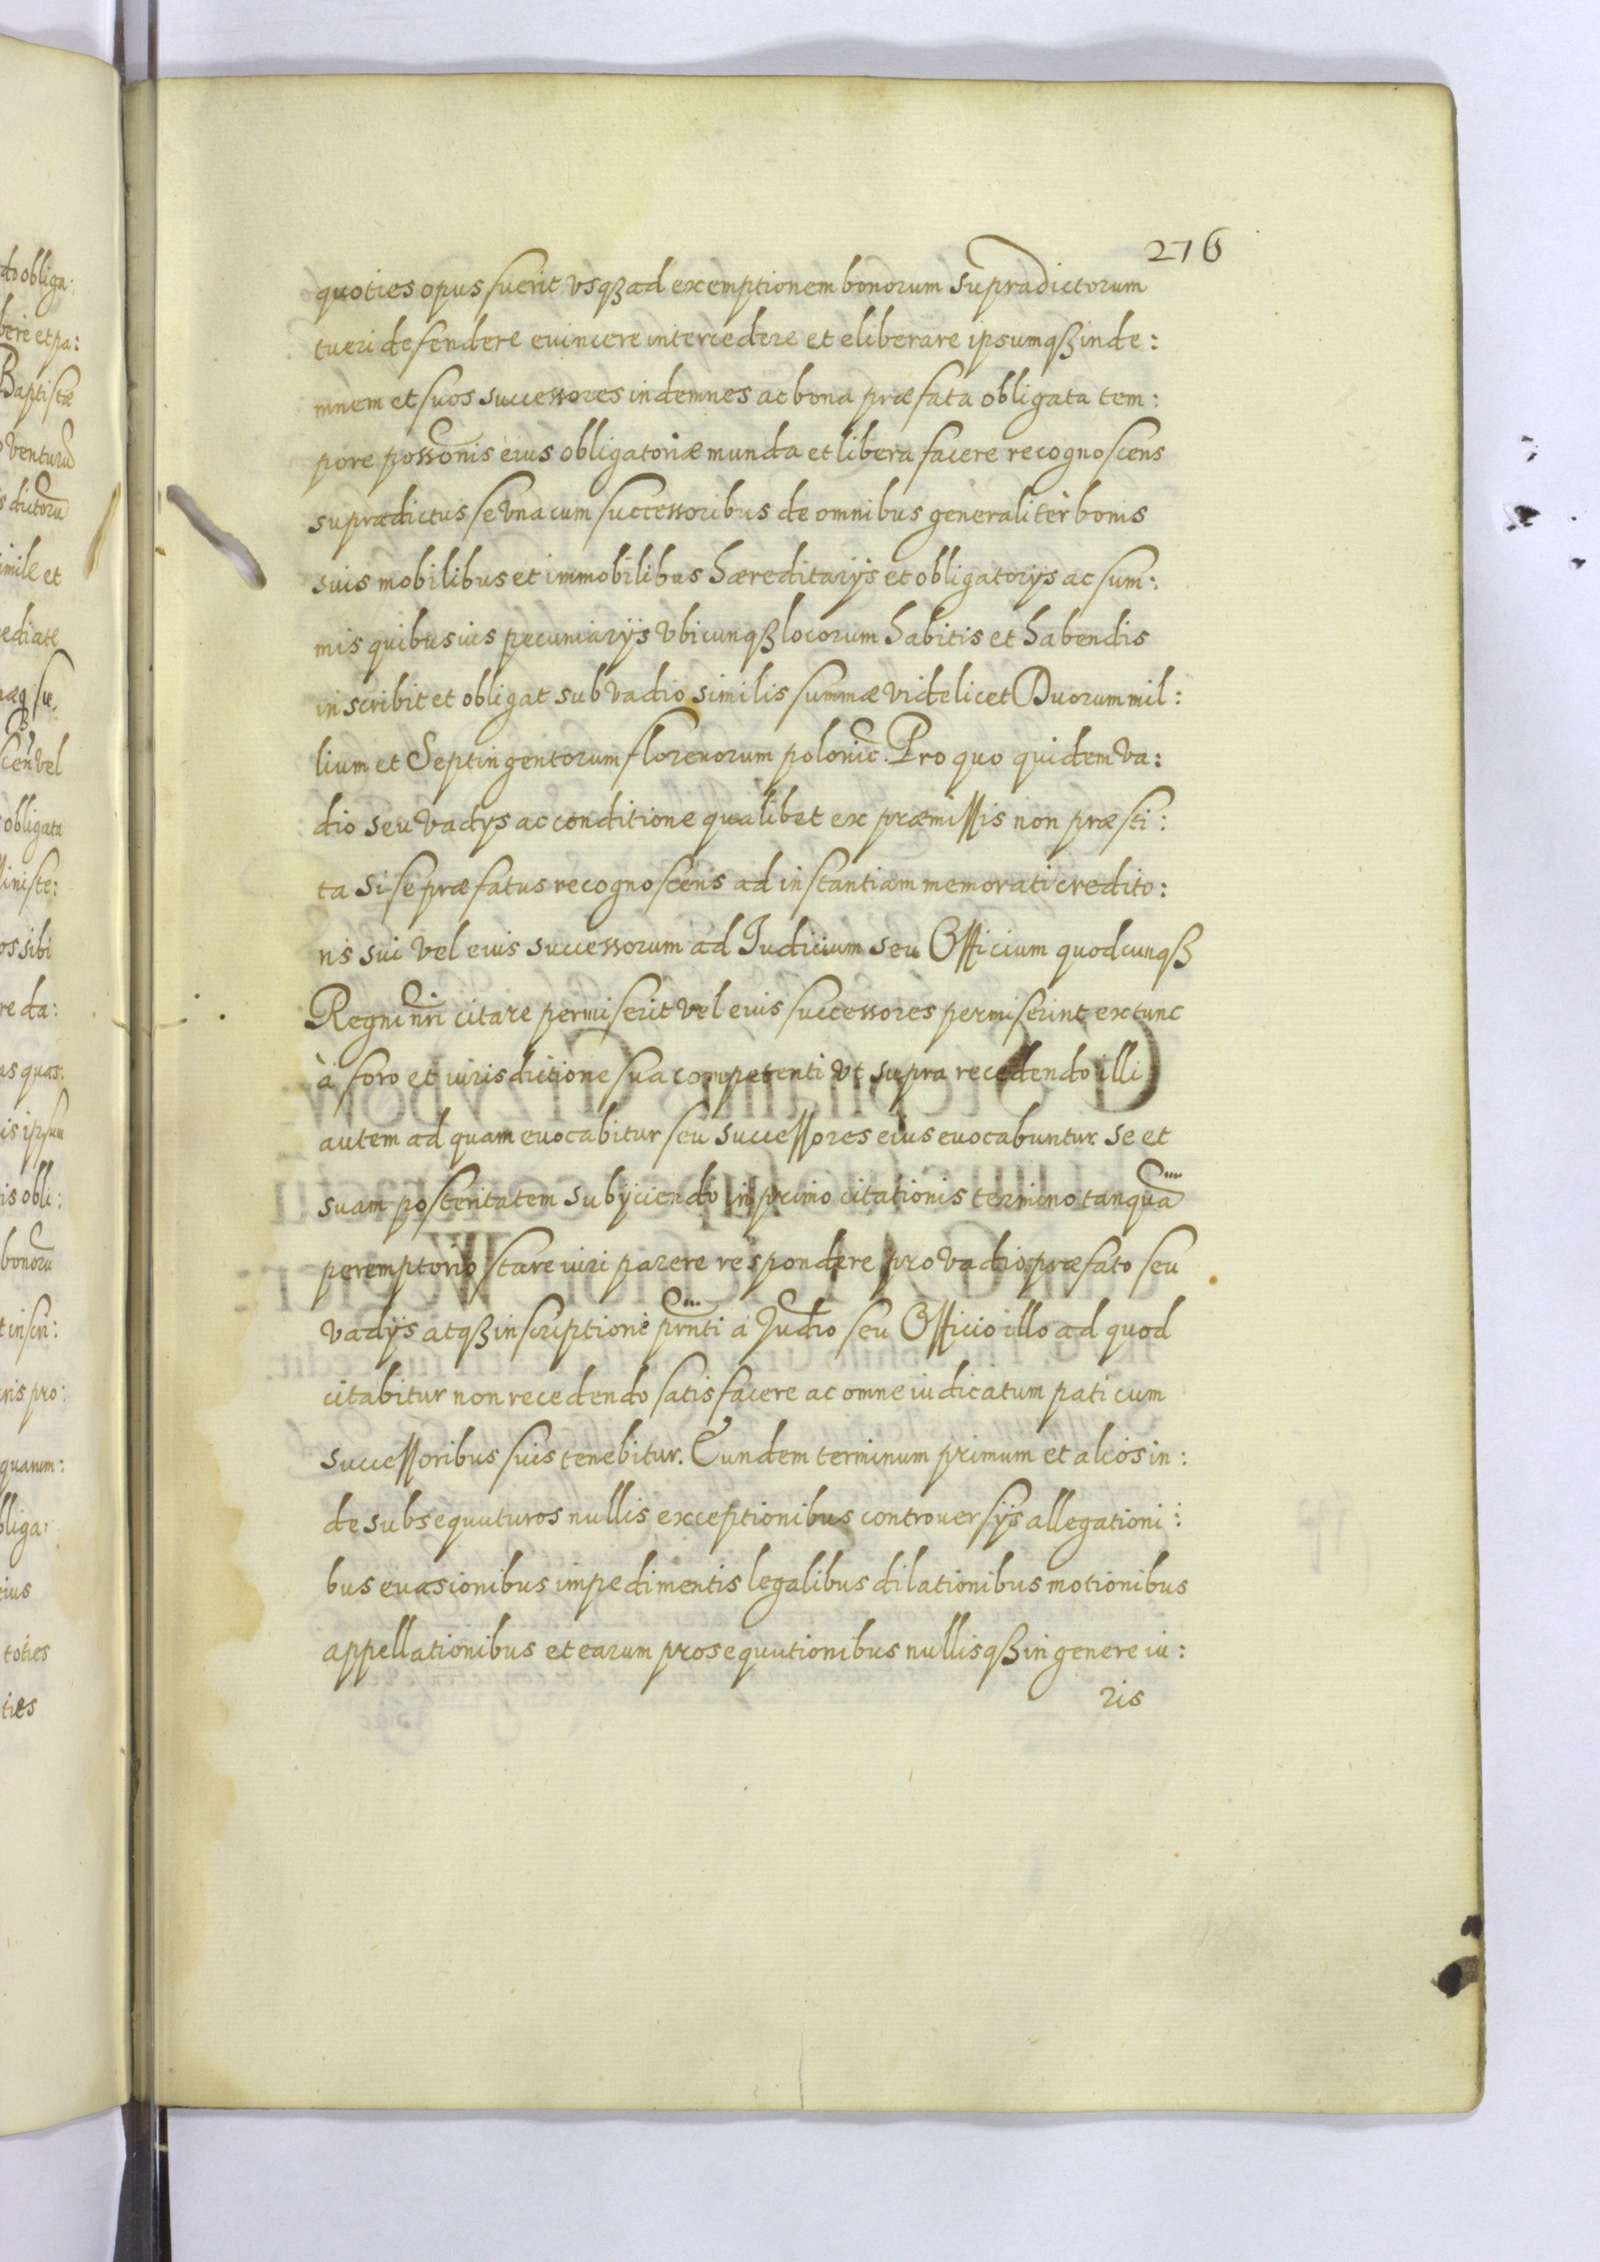 276
quoties opus fuerit vsqꝫ ad exemptionem bonorum supradictorum
tueri defendere euincere intercedere et eliberare ipsumqꝫ inde:
mnem et suos successores indemnes ac bona præfata obligata tem:
pore possonis eius obligatoriæ munda et libera facere recognoscens
supradictus se vna cum successoribus de omnibus generalitèr bonis
suis mobilibus et immobilibus hæreditarijs et obligatorijs ac sum:
mis quibusuis pecuniarijs vbicunqꝫ locorum habitis et habendis
inscribit et obligat sub vadio similis summæ videlicet Duorum mil:
lium et Septingentorum florenorum polonic. Pro quo quidem va:
dio seu vadijs ac conditione qualibet ex præmissis non præsti:
ta si se præfatus recognoscens ad instantiam memorati credito:
ris sui vel eius successorum ad Iudicium seu Officium quodcunqꝫ
Regni nri citare permiserit vel eius successores permiserint extunc
à foro et iurisdictione sua competenti vt supra recedendo illi
autem ad quam euocabitur seu successores eius euocabuntur se et
suam posteritatem subijciendo in primo citationis termino tanqua
peremptorio stare iuri parere respondere pro vadio præfato seu
vadijs atqꝫ inscriptione prnti à Judio seu Officio illo ad quod
citabitur non recedendo satisfacere ac omne iudicatum pati cum
successoribus suis tenebitur. Eundem terminum primum et alios in:
de subsequuturos nullis exceptionibus controuersijs allegationi:
bus euasionibus impedimentis legalibus dilationibus motionibus
appellationibus et earum prosequutionibus nullisqꝫ in genere iu:
ris